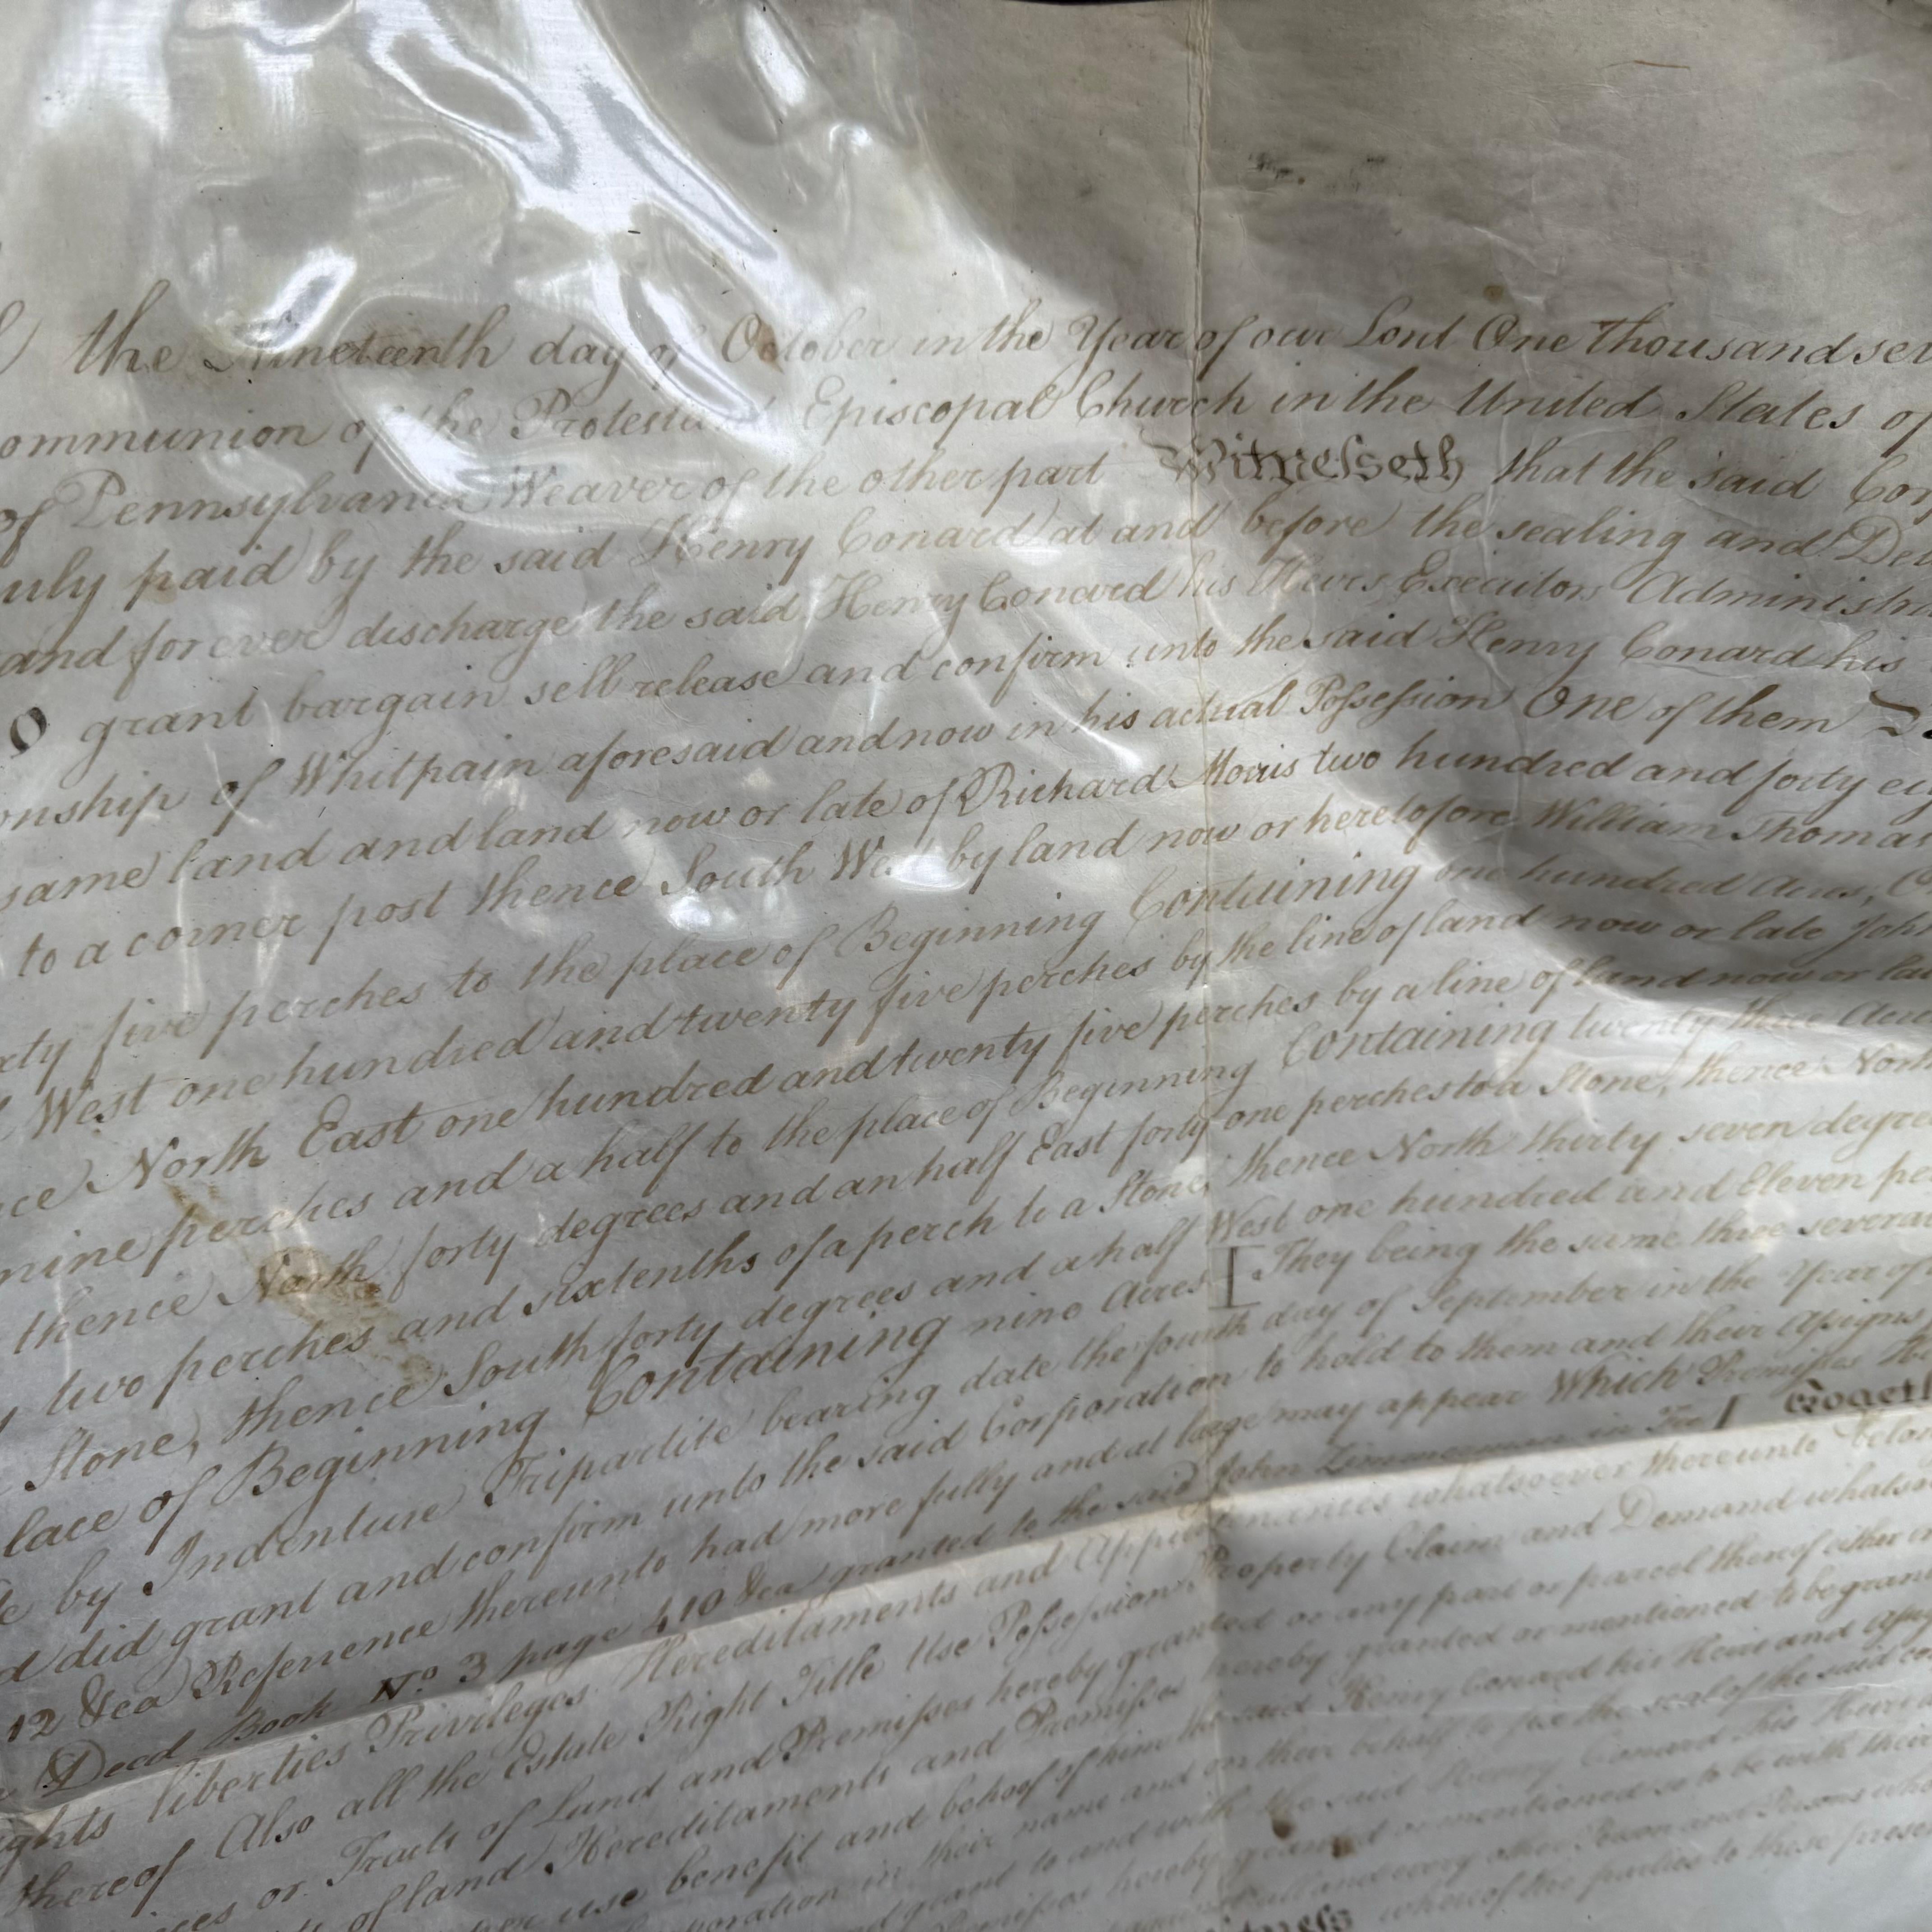 the Nineteenth day of October in the Year of our Lord One thousand sev
ommunion of the Protestant Episcopal Church in the United States of
of Pennsylvania Weaver of the other part Witnesseth that the said Cor
uly paid by the said Henry Conard at and before the sealing and Del
and forever discharge the said Henry Conard his Heirs Executors Administr
o grant bargain sell release and confirm unto the said Henry Conard his
onship of Whitpain aforesaid and now in his actual Possession One of them
same land and land now or late of Richard Morris two hundred and forty eig
to a corner post thence South West by land now or heretofore William Thomas
xty five perches to the place of Beginning Containing one hundred Acres,
West one hundred and twenty five perches by the line of land now or late John
ce North East one hundred and twenty five perches by a line of land now or la
nine perches and a half to the place of Beginning Containing twenty three Acre
thence North forty degrees and an half East forty one perches to a Stone, thence Nor
two perches and sixtenths of a perch to a Stone, thence North thirty seven degre
Stone, thence South forty degrees and a half West one hundred and Eleven pe
lace of Beginning Containing nine Acres They being the same three severa
by Indenture Tripartite bearing date the fourth day of September in the Year of
d did grant and confirm unto the said Corporation to hold to them and their Assigns
12 &ca Reference thereunto had more fully and at large may appear Which Premisses
Deed Book No 3 page 410 &ca granted to the said John Zimmerman in Fee Togeth
ghts liberties Privileges Hereditaments and Appurtenances whatsoever thereunto belon
thereof Also all the Estate Right Title Use Possession Property Claim and Demand whatso
or Tracts of Land and Premisses hereby granted or any part or parcel thereof either
of land Hereditaments and Premisses hereby granted or mentioned to be grant
use benefit and behoof of him the said Henry Conard his Heirs and Assi
oration in their name and on their behalf to fix the seal of the said co
grant to and with the said Henry Conard his Heirs
Premisses hereby granted or mentioned so to be with their
all and every other Person and Persons
itness whereof the parties to these prese